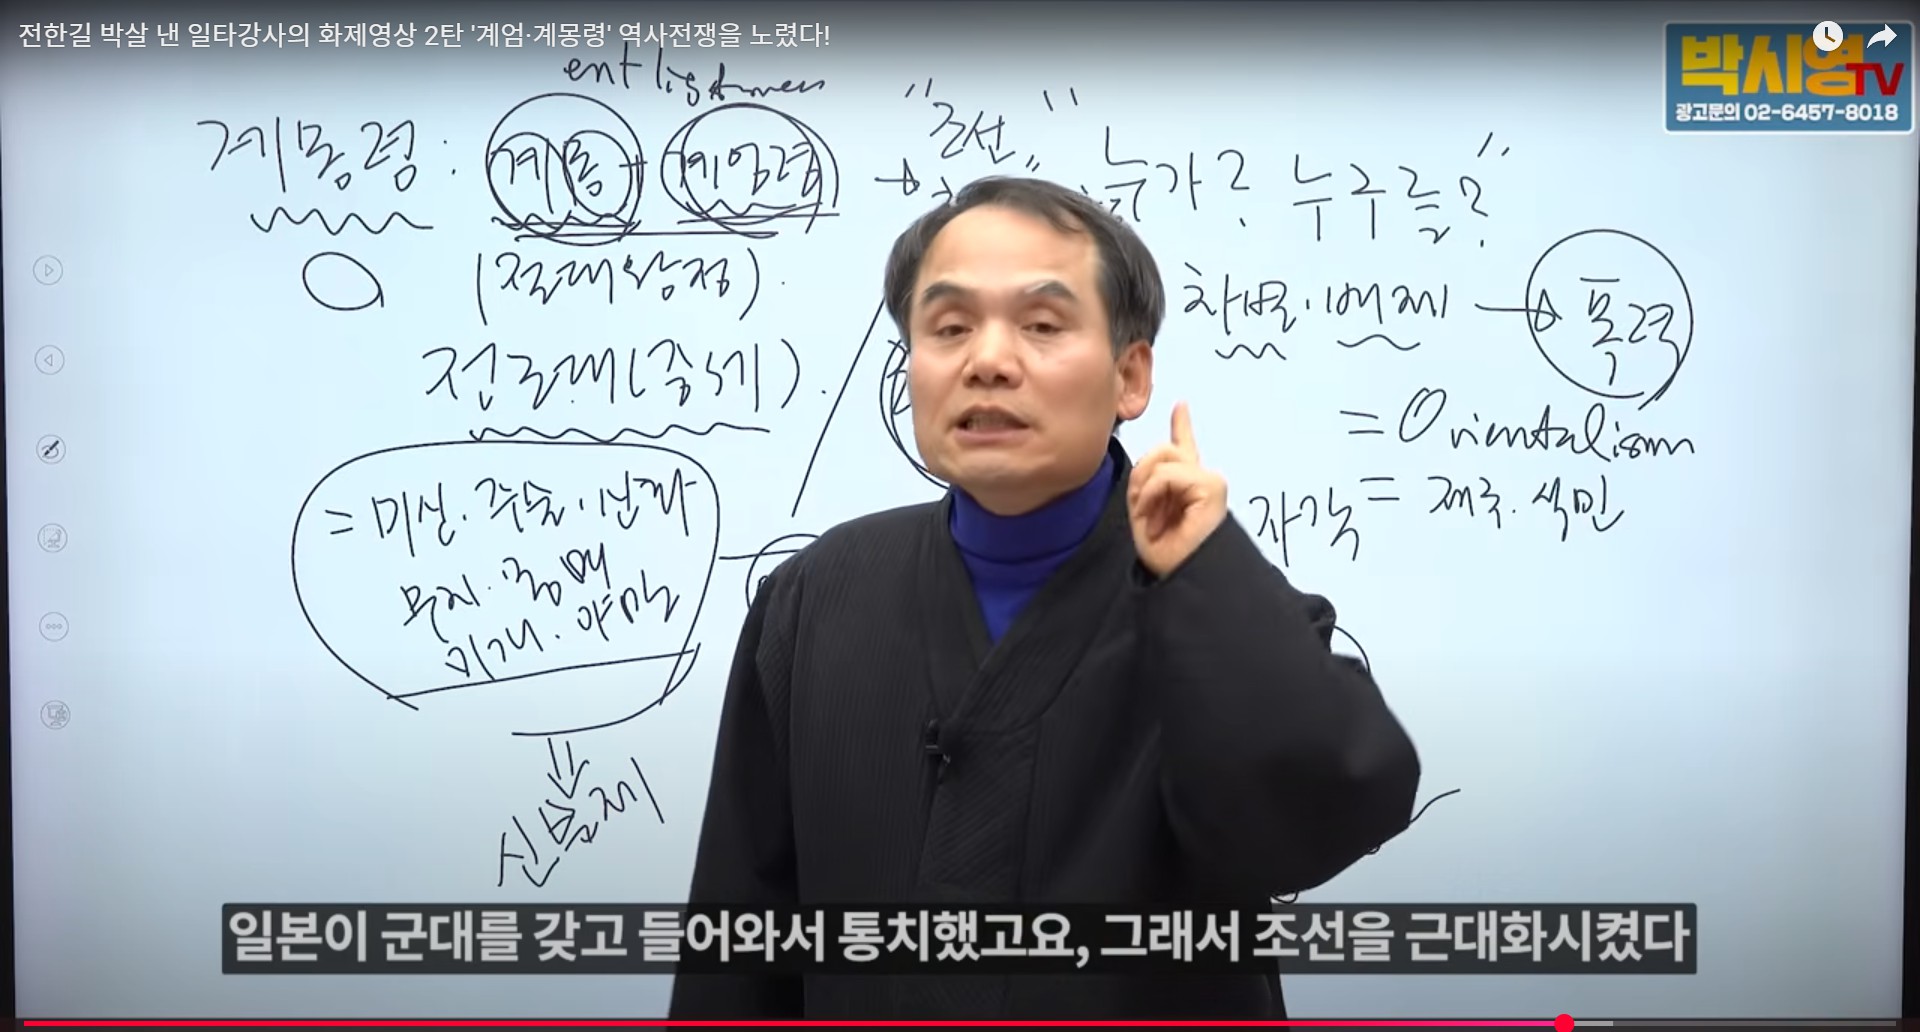 전한길 박살 낸 일타강사의 화제영상 2탄 '계엄·계몽령' 역사전쟁을 노렸다!
박시영TV
광고문의 02-6457-8018
계몽령 : 계몽 + 계엄령 →
"조선" 누가? 누구를?"
(절대왕정).
차별·배제 → 폭력
전근대(중세).
= Orientalism
= 미신·주술·
자각 = 제국·식민
무지·몽매
야만
신분제
일본이 군대를 갖고 들어와서 통치했고요, 그래서 조선을 근대화시켰다